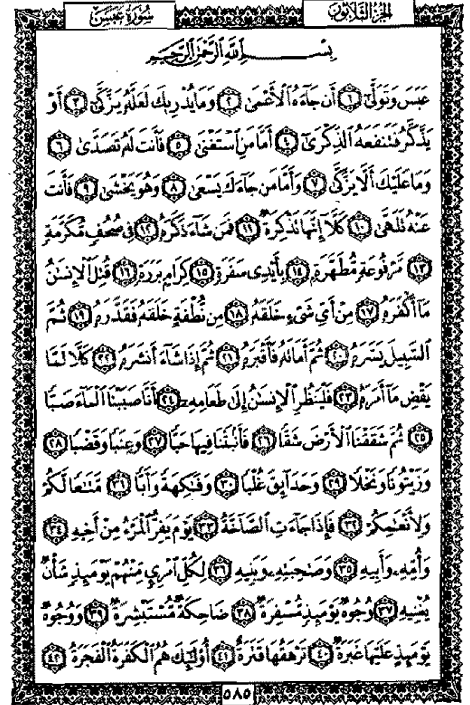 الجزء الثلاثون
سورة عبس
بِسْمِ اللَّهِ الرَّحْمَٰنِ الرَّحِيمِ
عَبَسَ وَتَوَلَّىٰ ۝١ أَن جَاءَهُ الْأَعْمَىٰ ۝٢ وَمَا يُدْرِيكَ لَعَلَّهُ يَزَّكَّىٰ ۝٣ أَوْ
يَذَّكَّرُ فَتَنفَعَهُ الذِّكْرَىٰ ۝٤ أَمَّا مَنِ اسْتَغْنَىٰ ۝٥ فَأَنتَ لَهُ تَصَدَّىٰ ۝٦
وَمَا عَلَيْكَ أَلَّا يَزَّكَّىٰ ۝٧ وَأَمَّا مَن جَاءَكَ يَسْعَىٰ ۝٨ وَهُوَ يَخْشَىٰ ۝٩ فَأَنتَ
عَنْهُ تَلَهَّىٰ ۝١٠ كَلَّا إِنَّهَا تَذْكِرَةٌ ۝١١ فَمَن شَاءَ ذَكَرَهُ ۝١٢ فِي صُحُفٍ مُّكَرَّمَةٍ
۝١٣ مَّرْفُوعَةٍ مُّطَهَّرَةٍ ۝١٤ بِأَيْدِي سَفَرَةٍ ۝١٥ كِرَامٍ بَرَرَةٍ ۝١٦ قُتِلَ الْإِنسَٰنُ
مَا أَكْفَرَهُ ۝١٧ مِنْ أَيِّ شَيْءٍ خَلَقَهُ ۝١٨ مِن نُّطْفَةٍ خَلَقَهُ فَقَدَّرَهُ ۝١٩ ثُمَّ
السَّبِيلَ يَسَّرَهُ ۝٢٠ ثُمَّ أَمَاتَهُ فَأَقْبَرَهُ ۝٢١ ثُمَّ إِذَا شَاءَ أَنشَرَهُ ۝٢٢ كَلَّا لَمَّا
يَقْضِ مَا أَمَرَهُ ۝٢٣ فَلْيَنظُرِ الْإِنسَٰنُ إِلَىٰ طَعَامِهِ ۝٢٤ أَنَّا صَبَبْنَا الْمَاءَ صَبًّا
۝٢٥ ثُمَّ شَقَقْنَا الْأَرْضَ شَقًّا ۝٢٦ فَأَنبَتْنَا فِيهَا حَبًّا ۝٢٧ وَعِنَبًا وَقَضْبًا ۝٢٨
وَزَيْتُونًا وَنَخْلًا ۝٢٩ وَحَدَائِقَ غُلْبًا ۝٣٠ وَفَٰكِهَةً وَأَبًّا ۝٣١ مَّتَٰعًا لَّكُمْ
وَلِأَنْعَٰمِكُمْ ۝٣٢ فَإِذَا جَاءَتِ الصَّاخَّةُ ۝٣٣ يَوْمَ يَفِرُّ الْمَرْءُ مِنْ أَخِيهِ ۝٣٤
وَأُمِّهِ وَأَبِيهِ ۝٣٥ وَصَٰحِبَتِهِ وَبَنِيهِ ۝٣٦ لِكُلِّ امْرِئٍ مِّنْهُمْ يَوْمَئِذٍ شَأْنٌ
يُغْنِيهِ ۝٣٧ وُجُوهٌ يَوْمَئِذٍ مُّسْفِرَةٌ ۝٣٨ ضَاحِكَةٌ مُّسْتَبْشِرَةٌ ۝٣٩ وَوُجُوهٌ
يَوْمَئِذٍ عَلَيْهَا غَبَرَةٌ ۝٤٠ تَرْهَقُهَا قَتَرَةٌ ۝٤١ أُولَٰئِكَ هُمُ الْكَفَرَةُ الْفَجَرَةُ ۝٤٢
٥٨٥